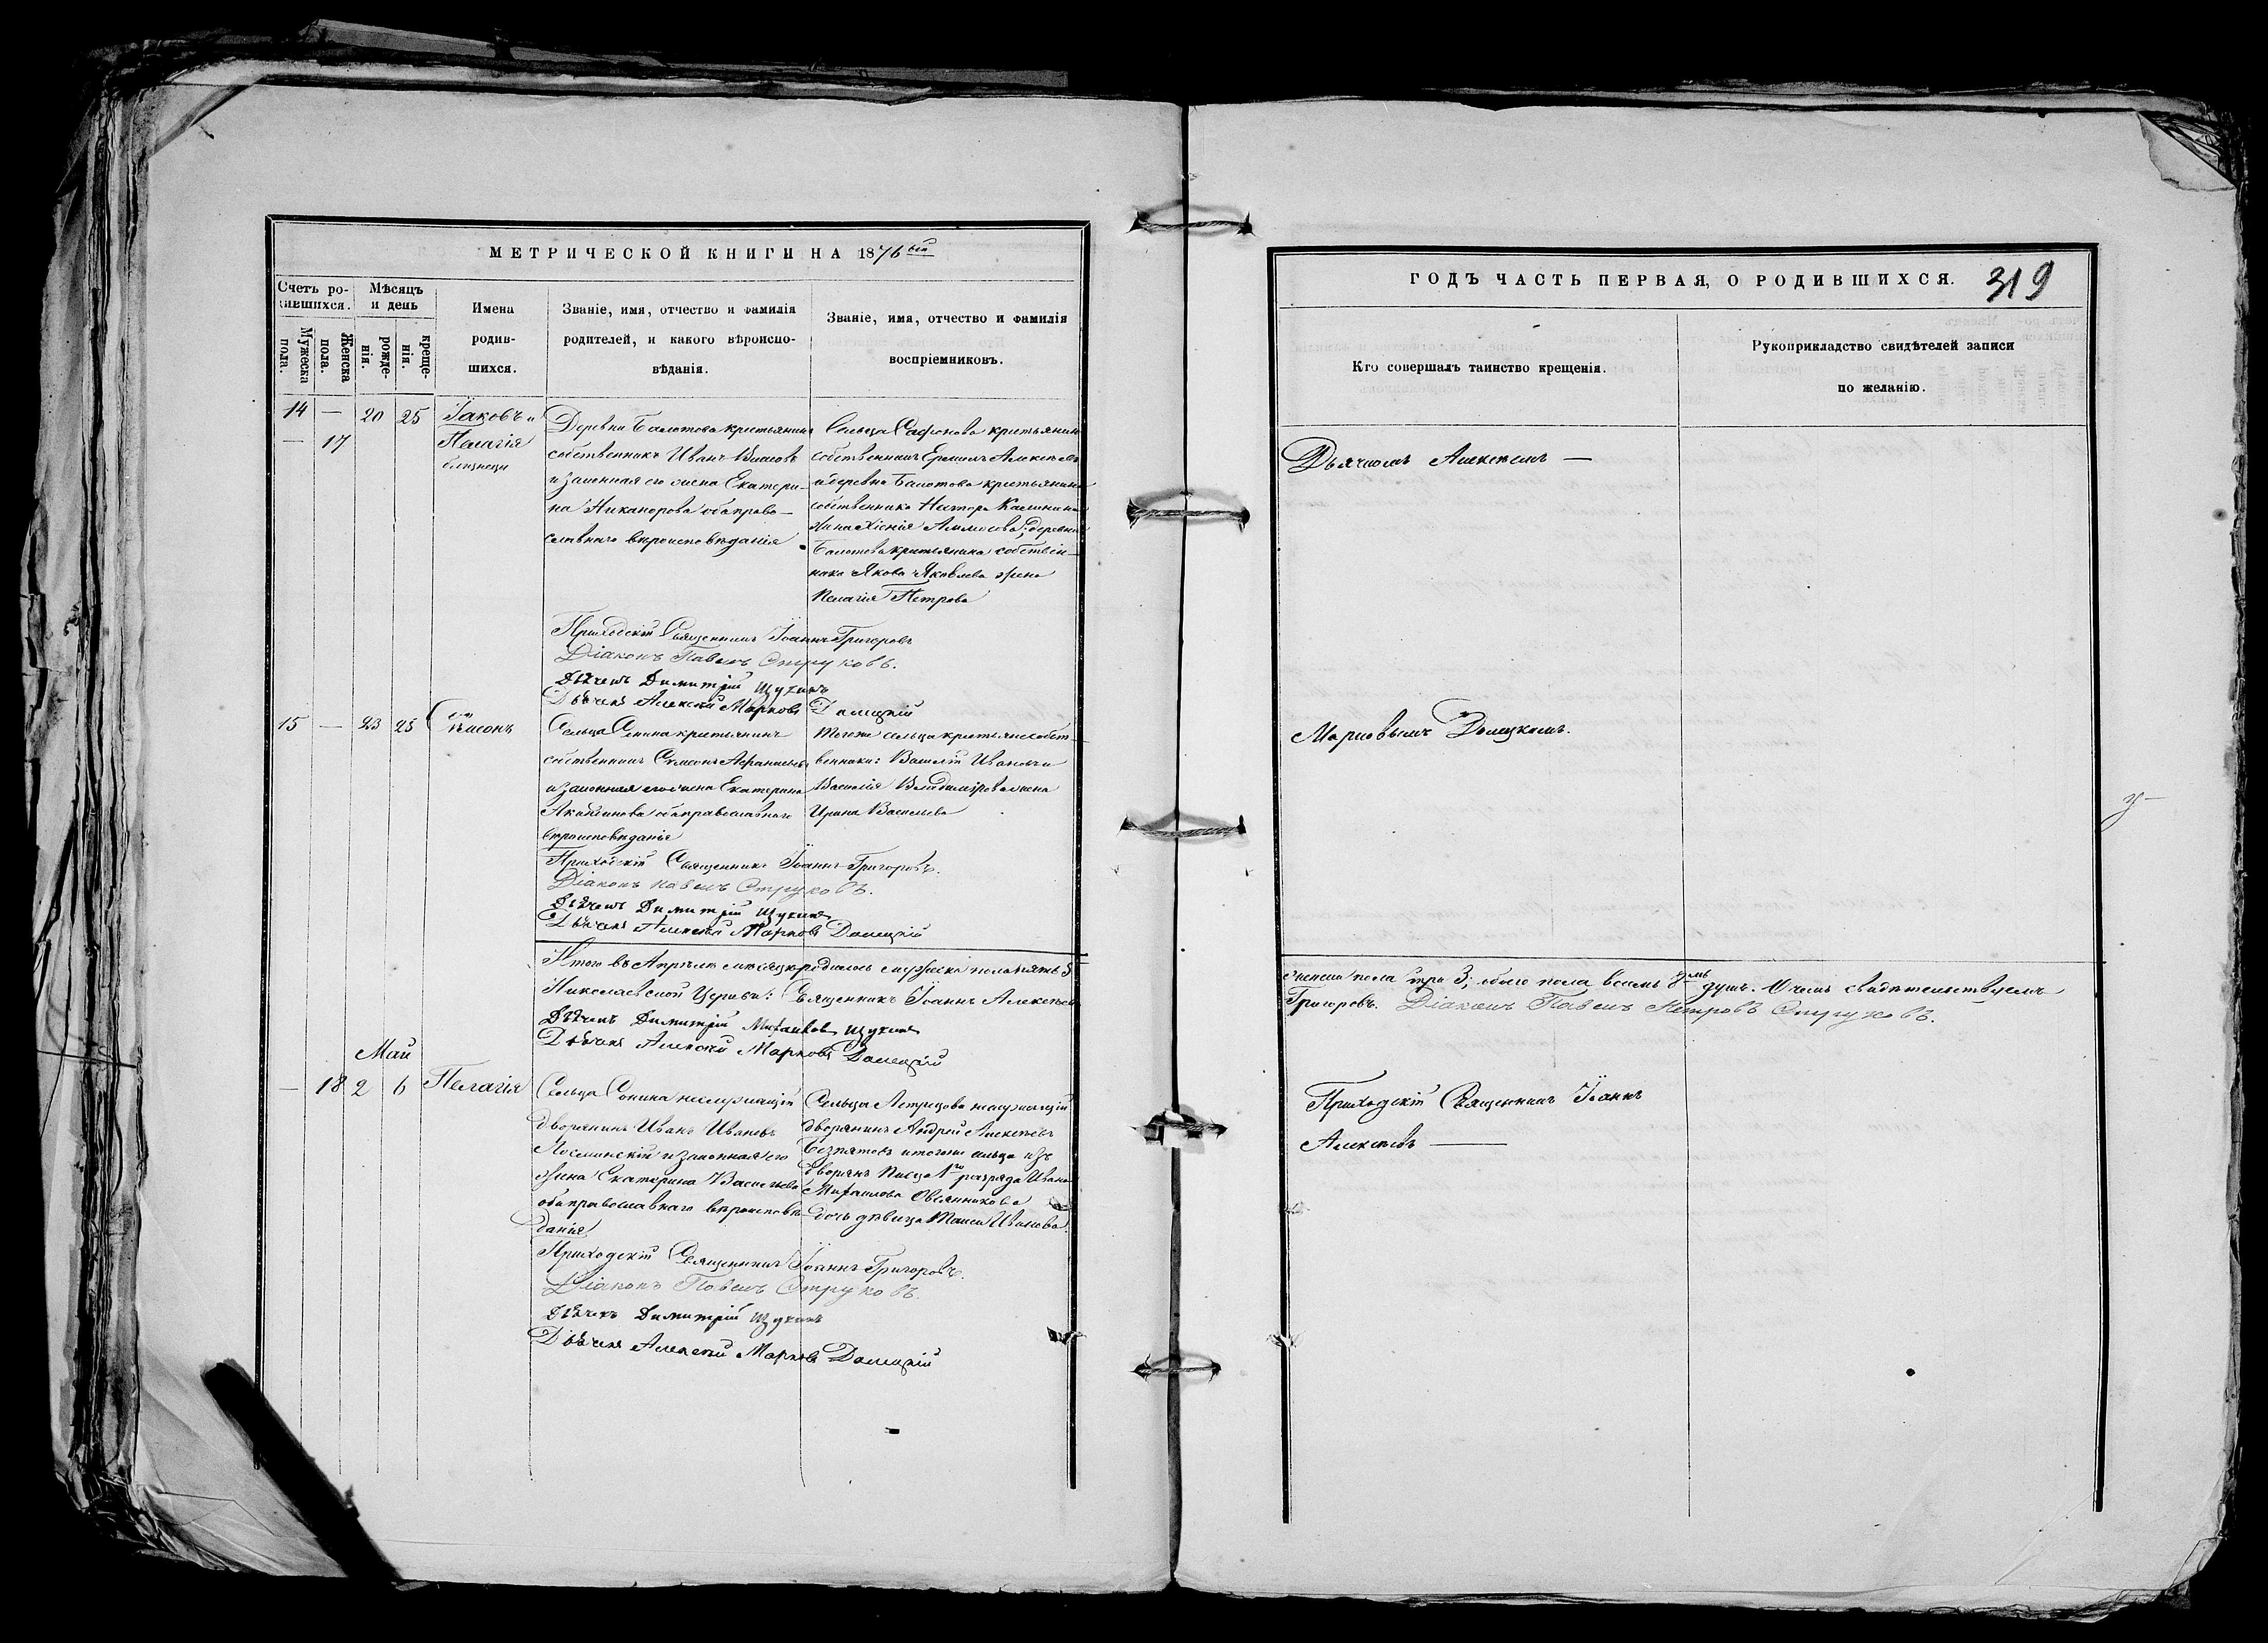 МЕТРИЧЕСКОЙ КНИГИ НА 1876ый
Счетъ ро-
дившихся.
Мужеска пола.
Женска пола.
Мѣсяцъ
и день
рожде-
нія.
креще-
нія.
Имена
родив-
шихся.
Званіе, имя, отчество и фамилія
родителей, и какого вѣроиспо-
вѣданія.
Званіе, имя, отчество и фамилія
воспріемниковъ.
14 — 20 25 Іаковъ и
— 17 Пелагія
близнецы
Деревни Болотова крестьянинъ
собственникъ Иванъ
и законная его жена Екатери-
на Никанорова оба право-
славнаго вѣроисповѣданія
Сельца Сафонова крестьянинъ
собственникъ Ермилъ Алексѣевъ
и деревни Болотова крестьянина
собственника Нестора Калинина
жена Ксенія деревни
Болотова крестьянина собствен-
ника Якова Яковлева жена
Пелагія Петрова
Приходскій Священникъ Іоаннъ Григоровъ
Діаконъ Павелъ Струковъ.
Дьячекъ Димитрій Щукинъ
Дьячекъ Алексѣй Марковъ Долецкій
15 — 23 25 Симеонъ
Сельца Сонина крестьянинъ
собственникъ Симеонъ Афанасьевъ
и законная его жена Екатерина
оба православнаго
вѣроисповѣданія
Тогоже сельца крестьяне собст-
венники: Василій Ивановъ и
Василія Владимірова жена
Ирина Васильева
Приходскій Священникъ Іоаннъ Григоровъ.
Діаконъ Павелъ Струковъ.
Дьячекъ Димитрій Щукинъ
Дьячекъ Алексѣй Марковъ Долецкій
Итого въ Апрѣлѣ мѣсяцѣ родилось мужеска пола пять 5
Николаевской Церкви: Священникъ Іоаннъ Алексѣевъ
Дьячекъ Димитрій Михаиловъ Щукинъ
Дьячекъ Алексѣй Марковъ Долецкій
Май
— 18 2 6 Пелагія
Сельца Сонина неслужащій
дворянинъ Иванъ Ивановъ
и законная его
жена Екатерина Васильева
оба православнаго вѣроисповѣ-
данія
Сельца неслужащій
дворянинъ Андрей Алексѣевъ
Безпятовъ и тогоже сельца изъ
дворянъ писца 1го разряда Ивана
Михаилова Овсянникова
дочь дѣвица Таисія Иванова.
Приходскій Священникъ Іоаннъ Григоровъ.
Діаконъ Павелъ Струковъ.
Дьячекъ Димитрій Щукинъ
Дьячекъ Алексѣй Марковъ Долецкій
ГОДЪ ЧАСТЬ ПЕРВАЯ, О РОДИВШИХСЯ.
319
Кто совершалъ таинство крещенія.
Рукоприкладство свидѣтелей записи
по желанію.
Дьячкомъ Алексѣемъ —
Марковымъ Долецкимъ.
женска пола три 3; обоего пола восемь 8мь душъ. О чемъ свидѣтельствуемъ
Григоровъ. Діаконъ Павелъ Петровъ Струковъ.
Приходскій Священникъ Іоаннъ
Алексѣевъ —